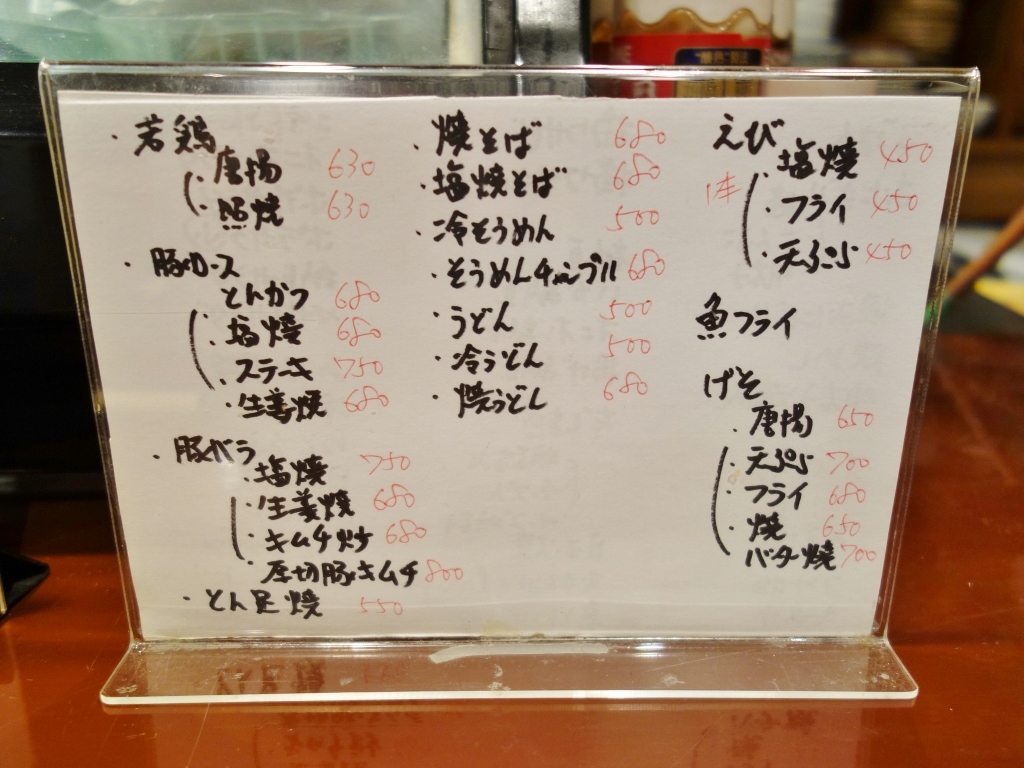 ・若鶏
・唐揚 630
・照焼 630
・豚ロース
とんかつ 680
・塩焼 680
・ステーキ 750
・生姜焼 680
・豚バラ
・塩焼 750
・生姜焼 680
・キムチ炒 680
・厚切豚キムチ 800
・とん足焼 550
・焼そば 680
・塩焼そば 680
・冷そうめん 500
・そうめんチャンプル 680
・うどん 500
・冷うどん 500
・焼うどん 680
えび
1本
・塩焼 450
・フライ 450
・天ぷら 450
魚フライ
げそ
・唐揚 650
・天ぷら 700
・フライ 680
・焼 650
バター焼 700